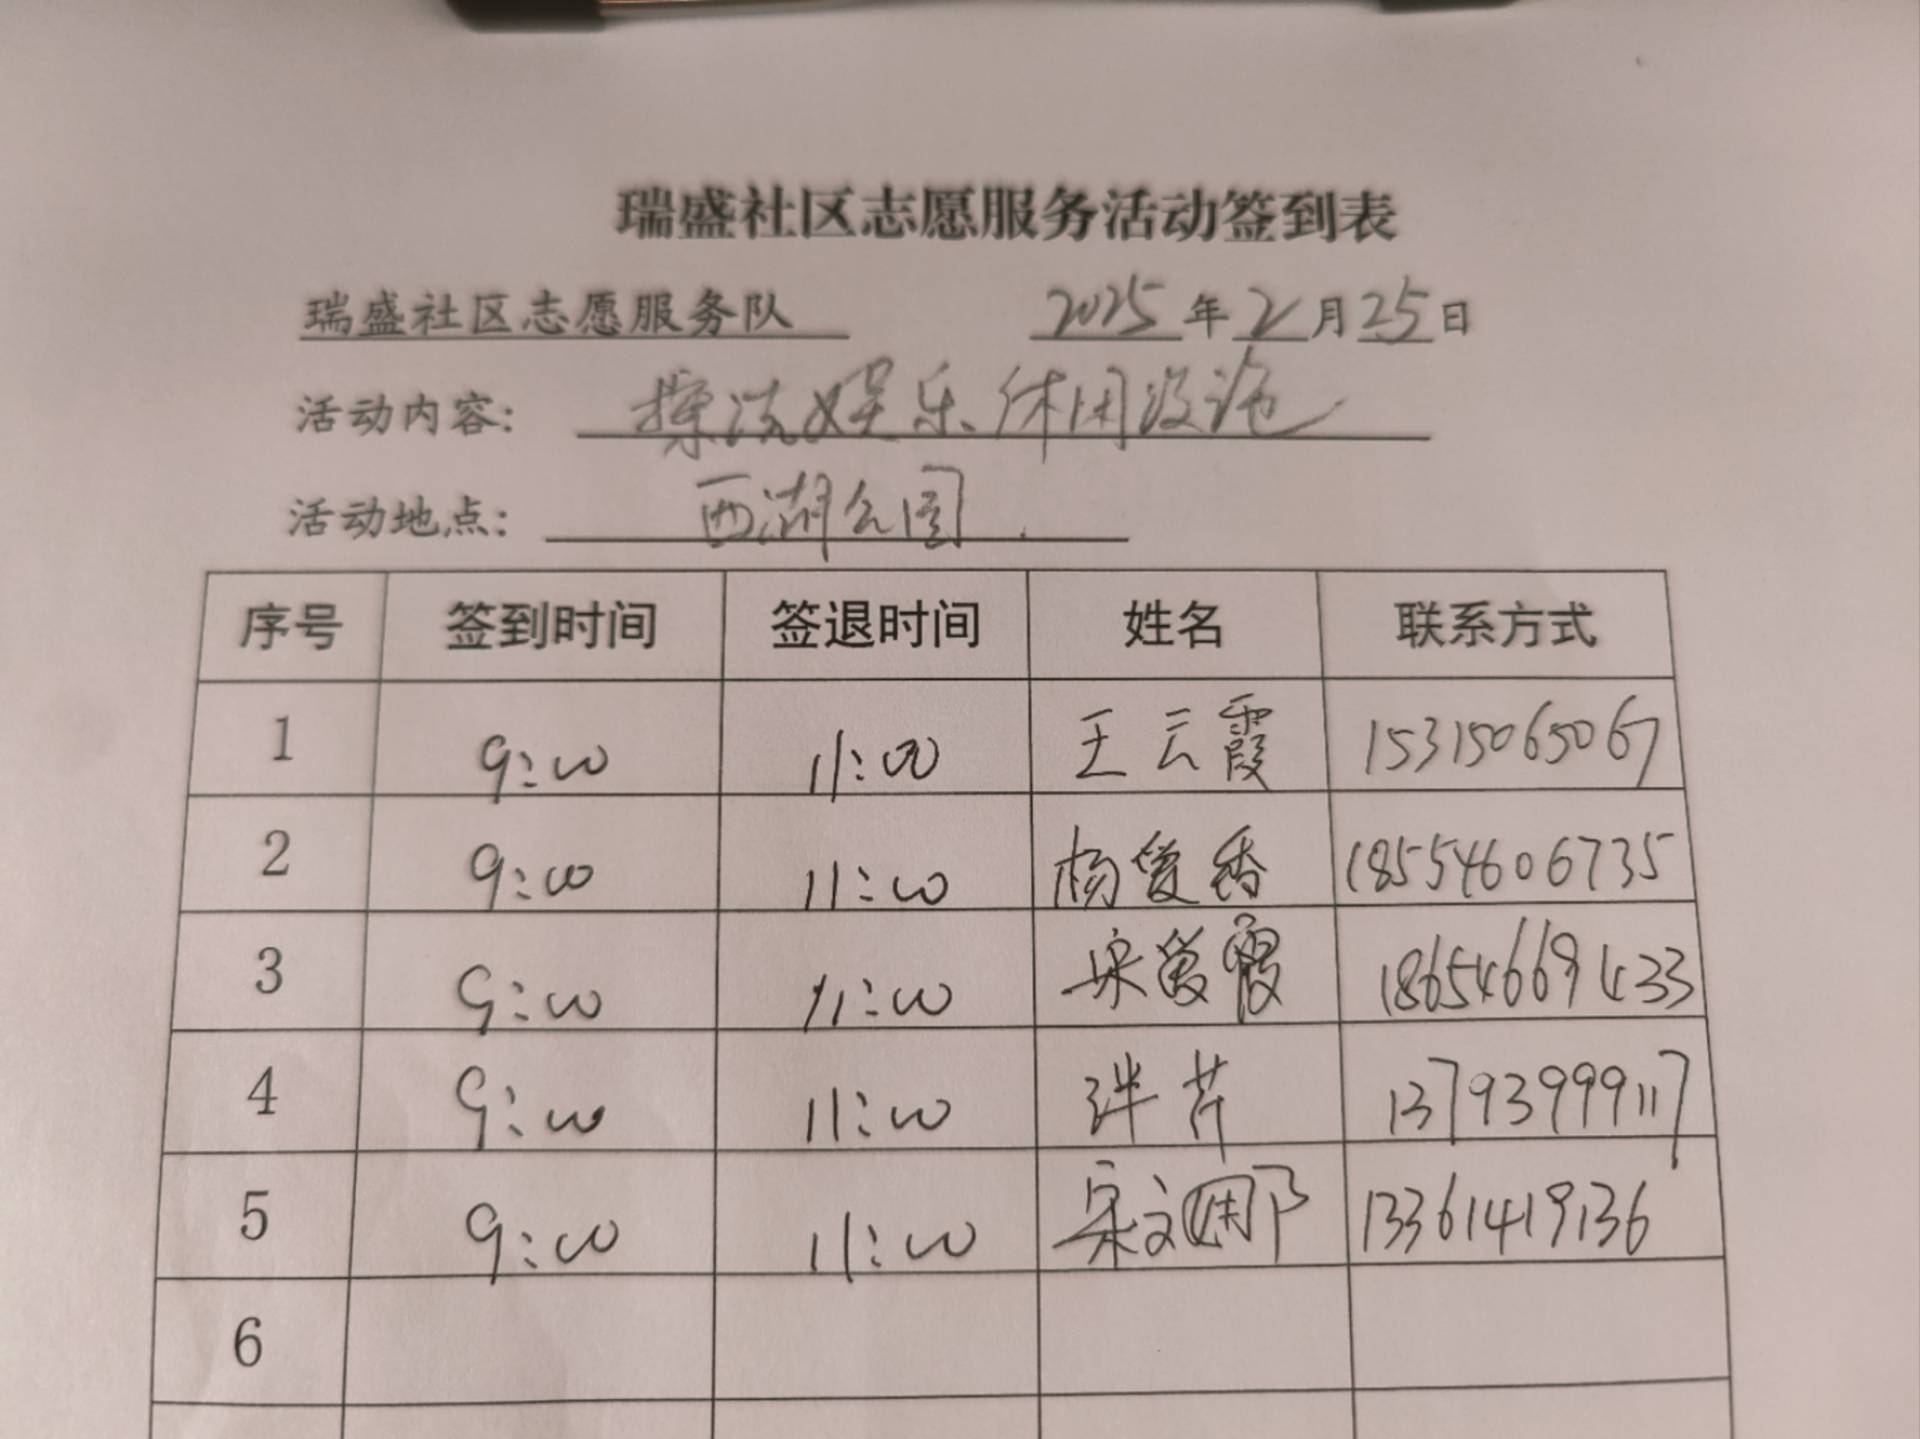 瑞盛社区志愿服务活动签到表
瑞盛社区志愿服务队 2025年2月25日
活动内容: 擦洗娱乐休闲设施
活动地点: 西湖公园
序号 签到时间 签退时间 姓名 联系方式
1 9:00 11:00 王云霞 15315065067
2 9:00 11:00 杨爱香 18554606735
3 9:00 11:00 宋爱霞 18654669433
4 9:00 11:00 芹 13793999117
5 9:00 11:00 宋文娜 13361419136
6